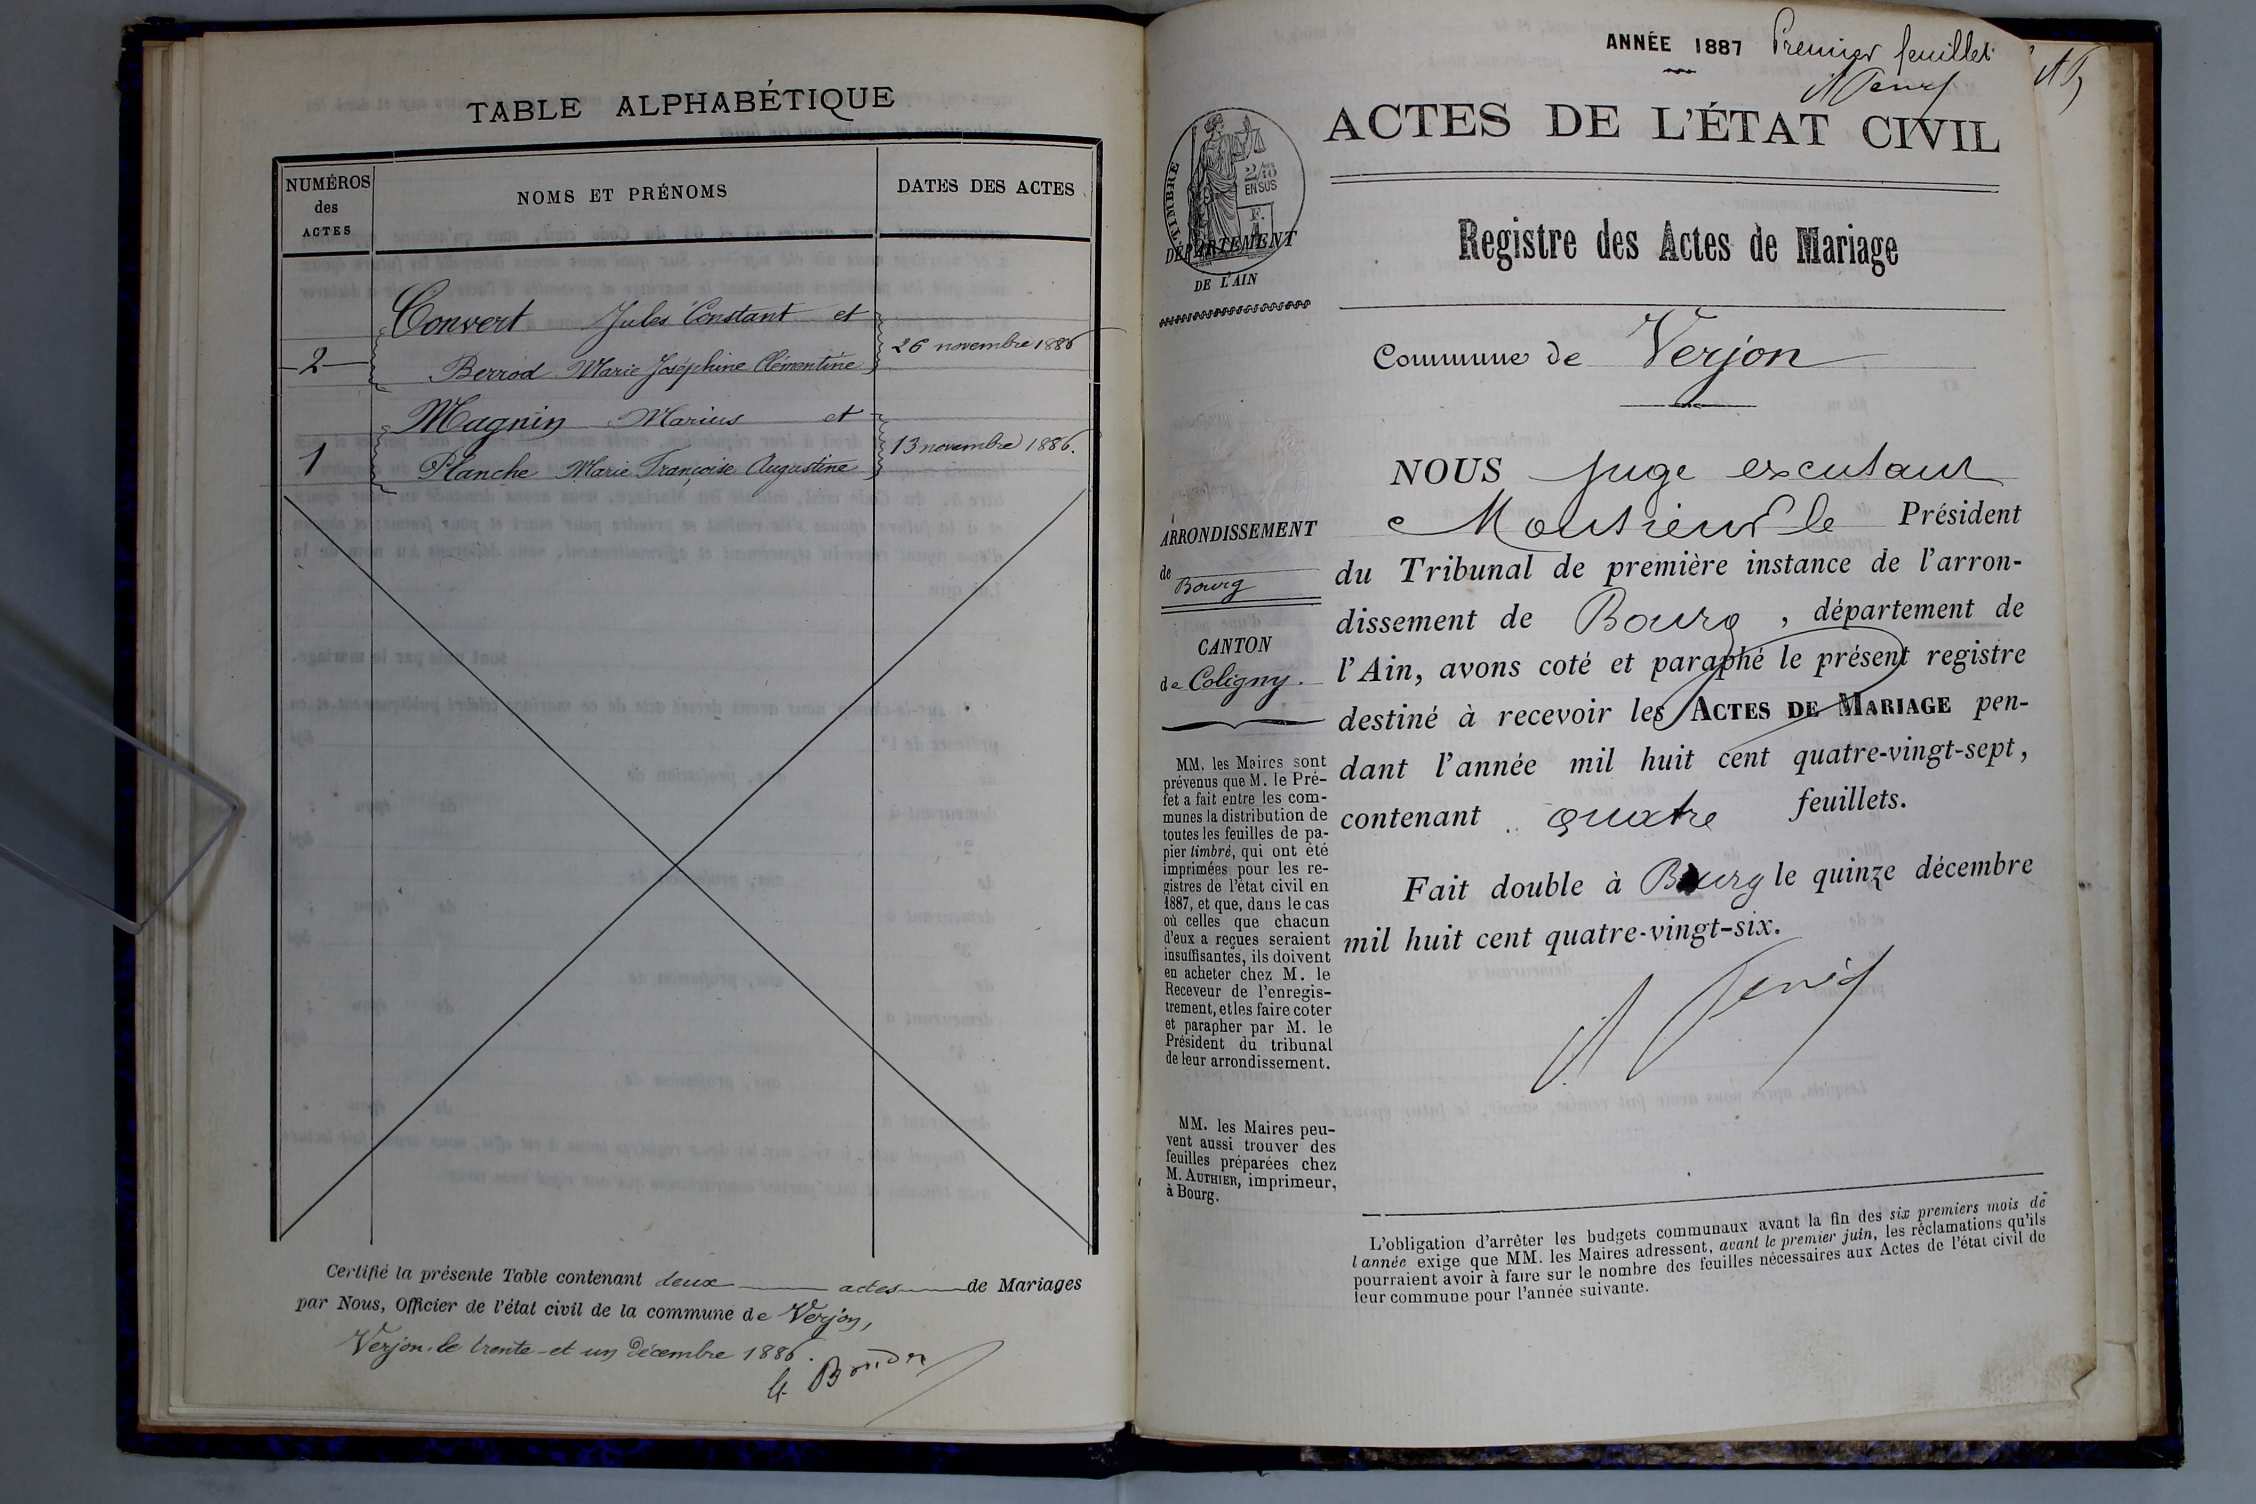 TABLE ALPHABÉTIQUE
NUMÉROS
des
ACTES
NOMS ET PRÉNOMS
DATES DES ACTES
2
Convert Jules Constant et
Berrod Marie Joséphine Clémentine
26 novembre 1886
1
Magnin Marius et
Planche Marie Françoise Augustine
13 novembre 1886.
Certifié la présente Table contenant deux actes de Mariages
par Nous, Officier de l'état civil de la commune de Verjon,
Verjon, le trente-et un décembre 1886.
ANNÉE 1887 Premier feuillet
ACTES DE L'ÉTAT CIVIL
TIMBRE
2/10
EN SUS
DÉPARTEMENT
DE L'AIN
Registre des Actes de Mariage
Commune de Verjon
ARRONDISSEMENT
de Bourg
CANTON
de Coligny.
MM. les Maires sont
prévenus que M. le Pré-
fet a fait entre les com-
munes la distribution de
toutes les feuilles de pa-
pier timbré, qui ont été
imprimées pour les re-
gistres de l'état civil en
1887, et que, dans le cas
où celles que chacun
d'eux a reçues seraient
insuffisantes, ils doivent
en acheter chez M. le
Receveur de l'enregis-
trement, et les faire coter
et parapher par M. le
Président du tribunal
de leur arrondissement.
MM. les Maires peu-
vent aussi trouver des
feuilles préparées chez
M. AUTHIER, imprimeur,
à Bourg.
NOUS juge excusant
Monsieur le Président
du Tribunal de première instance de l'arron-
dissement de Bourg, département de
l'Ain, avons coté et paraphé le présent registre
destiné à recevoir les ACTES DE MARIAGE pen-
dant l'année mil huit cent quatre-vingt-sept,
contenant quatre feuillets.
Fait double à Bourg le quinze décembre
mil huit cent quatre-vingt-six.
L'obligation d'arrêter les budgets communaux avant la fin des six premiers mois de
l'année exige que MM. les Maires adressent, avant le premier juin, les réclamations qu'ils
pourraient avoir à faire sur le nombre des feuilles nécessaires aux Actes de l'état civil de
leur commune pour l'année suivante.